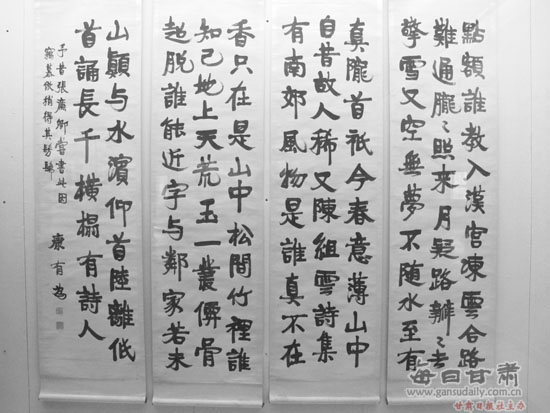 點額誰教入漢官凍雲合路
難通朧〻照來月疑路辦〻去
擎雪又空無夢不随水至有
真隴首祇今春意薄山中
自昔故人稀又陳組雲詩集
有南郊風物是誰真不在
香只在是山中松間竹裡誰
知己地上天荒玉一叢僊骨
超脱誰能近字与鄰家若未
山顛与水濱仰首陸離低
首誦長千橫榻有詩人
康有為
每日甘肃
www.gansudaily.com.cn
甘肃日报社主办